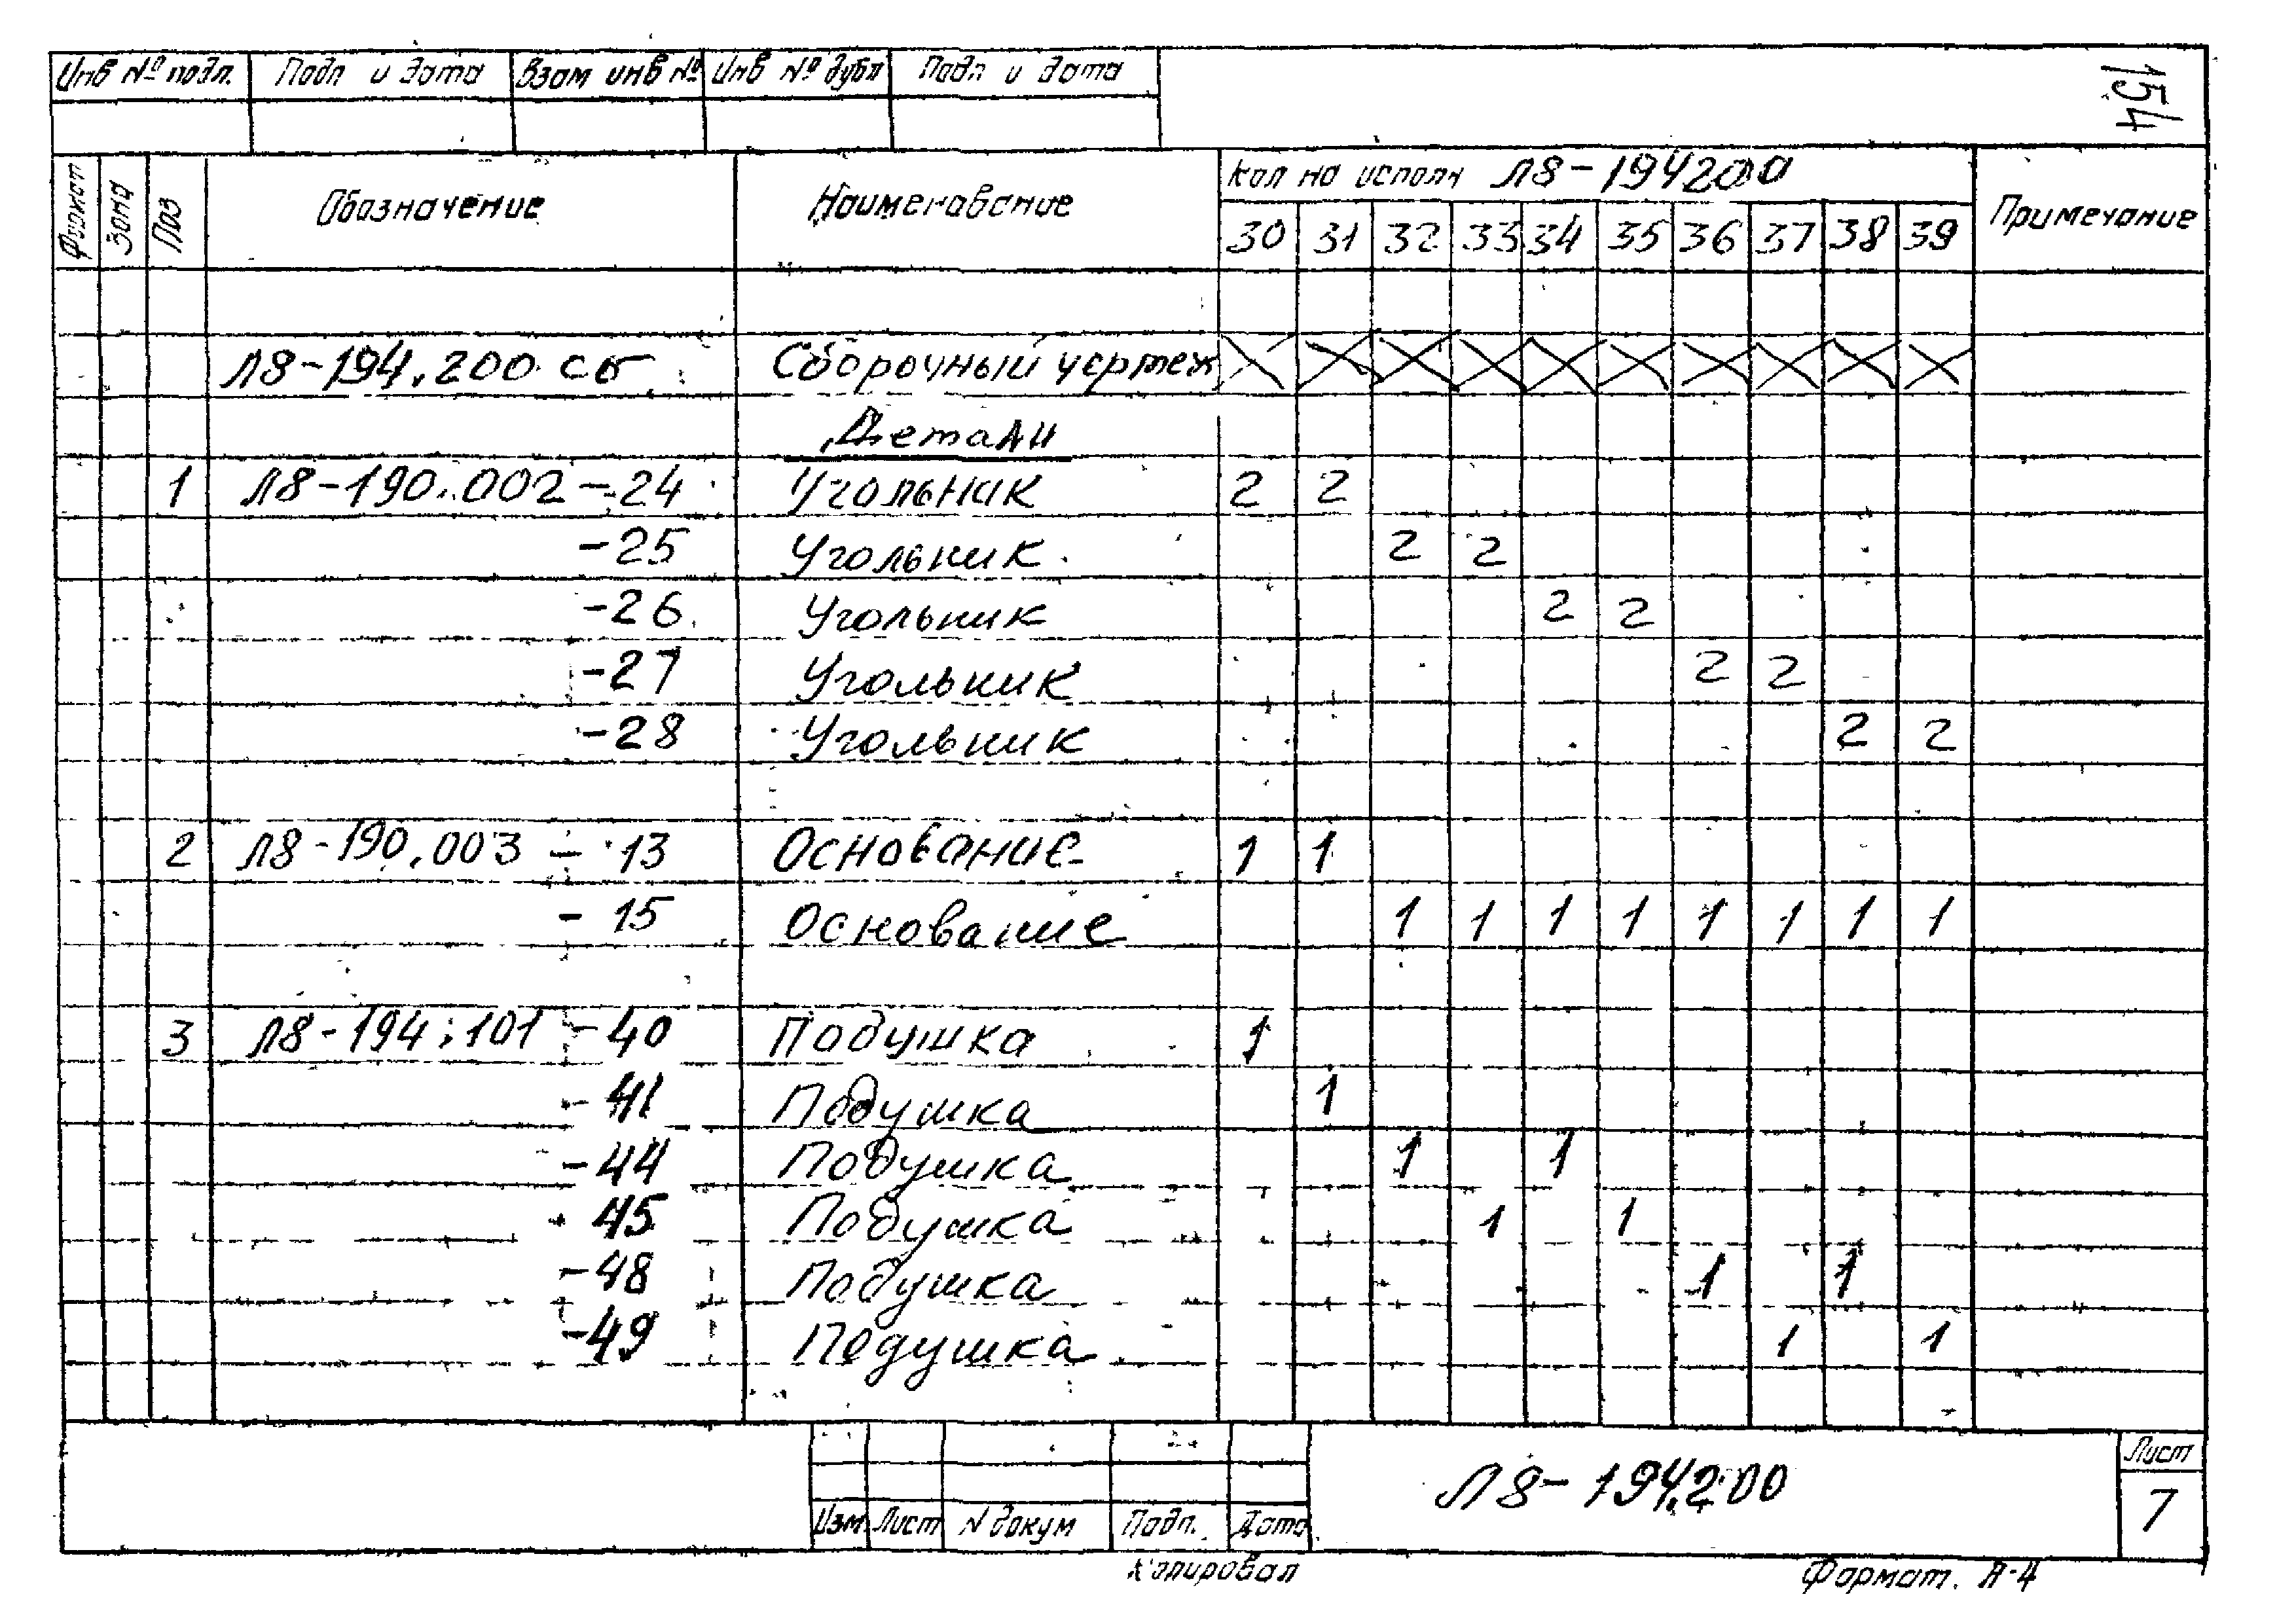 Инв № подл. Подп и дата Взам инв № Инв № дубл Подп и дата
154
Формат Зона Поз Обозначение Наименование Кол на исполн Л8-194200 Примечание
30 31 32 33 34 35 36 37 38 39
Л8-194.200 СБ Сборочный чертеж X X X X X X X X X X
Детали
1 Л8-190.002 -24 Угольник 2 2
-25 Угольник 2 2
-26 Угольник 2 2
-27 Угольник 2 2
-28 Угольник 2 2
2 Л8-190.003 - 13 Основание 1 1
- 15 Основание 1 1 1 1 1 1 1 1
3 Л8-194.101 -40 Подушка 1
-41 Подушка 1
-44 Подушка 1 1
-45 Подушка 1 1
-48 Подушка 1 1
-49 Подушка 1 1
Изм Лист N докум Подп. Дата
Л8-194.200
Лист
7
Копировал Формат. А-4